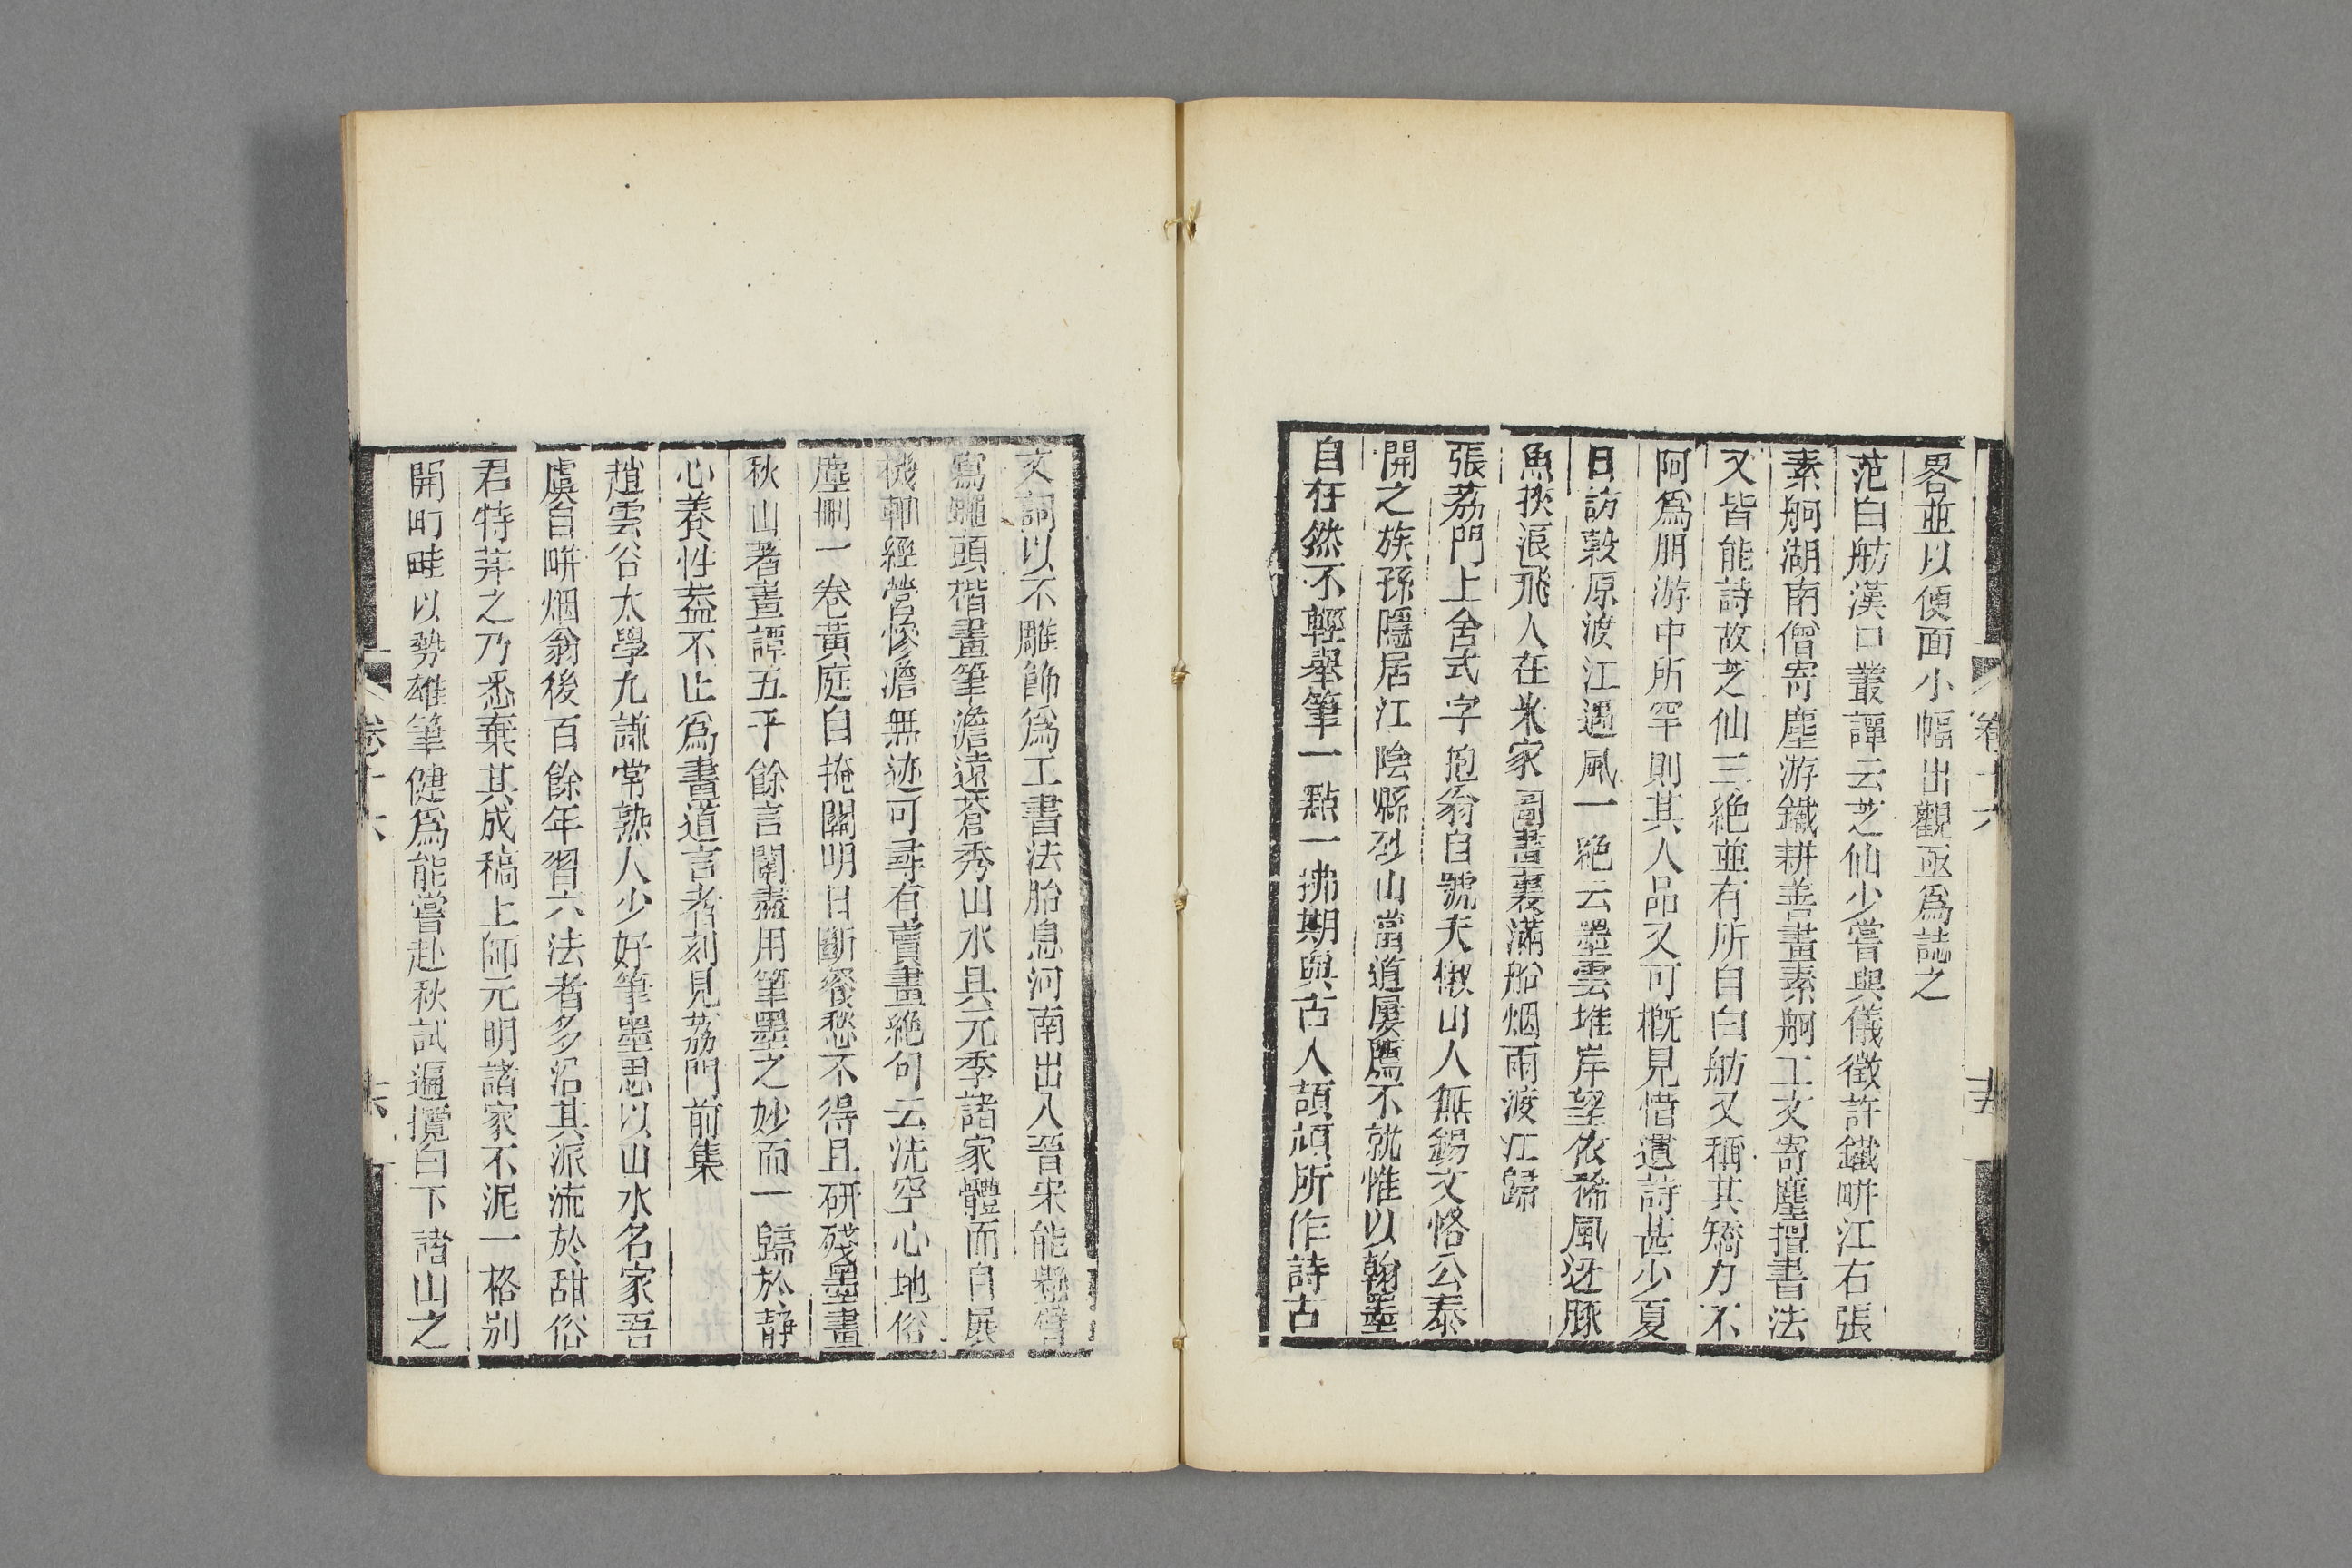 卷十六
十五
畧並以便面小幅出觀亟爲誌之
范白舫漢口叢譚云芝仙少嘗與儀徵許鐵畊江右張
素舸湖南僧寄塵游鐵耕善畫素舸工文寄塵擅書法
又皆能詩故芝仙三絶並有所自白舫又稱其矯力不
阿爲朋游中所罕則其人品又可概見惜遺詩甚少夏
日訪穀原渡江遇風一絶云墨雲堆岸望依稀風迓豚
魚挾浪飛人在米家圖畫裏滿船烟雨渡江歸
張荔門上舍式字抱翁自號夫椒山人無錫文恪公泰
開之族孫隱居江陰縣砂山當道屢薦不就惟以翰墨
自在然不輕舉筆一點一拂期與古人頡頏所作詩古
文詞以不雕飾爲工書法胎息河南出入晉宋能懸臂
寫蠅頭楷畫筆澹遠蒼秀山水具元季諸家體而自展
機軸經營慘澹無迹可尋有賣畫絶句云洗空心地俗
塵刪一卷黃庭自掩關明日斷餐愁不得且研殘墨畫
秋山著畫譚五千餘言闡盡用筆墨之妙而一歸於靜
心養性葢不止爲畫道言者刻見荔門前集
趙雲谷太學九謙常熟人少好筆墨思以山水名家吾
虞自畊烟翁後百餘年習六法者多沿其派流於甜俗
君特莽之乃悉棄其成稿上師元明諸家不泥一格别
開町畦以勢雄筆健爲能嘗赴秋試遍攬白下諸山之
卷十六
十六